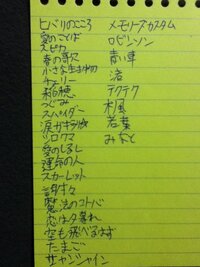 ヒバリのこころ
愛のことば
スピカ
春の歌
小さな生き物
チェリー
稲穂
つぐみ
スパイダー
涙がキラリ☆
シロクマ
愛のしるし
運命の人
スカーレット
謝々
魔法のコトバ
恋は夕暮れ
空も飛べるはず
たまご
サンシャイン
メモリーズカスタム
ロビンソン
青い車
渚
テクテク
楓
若葉
みなと